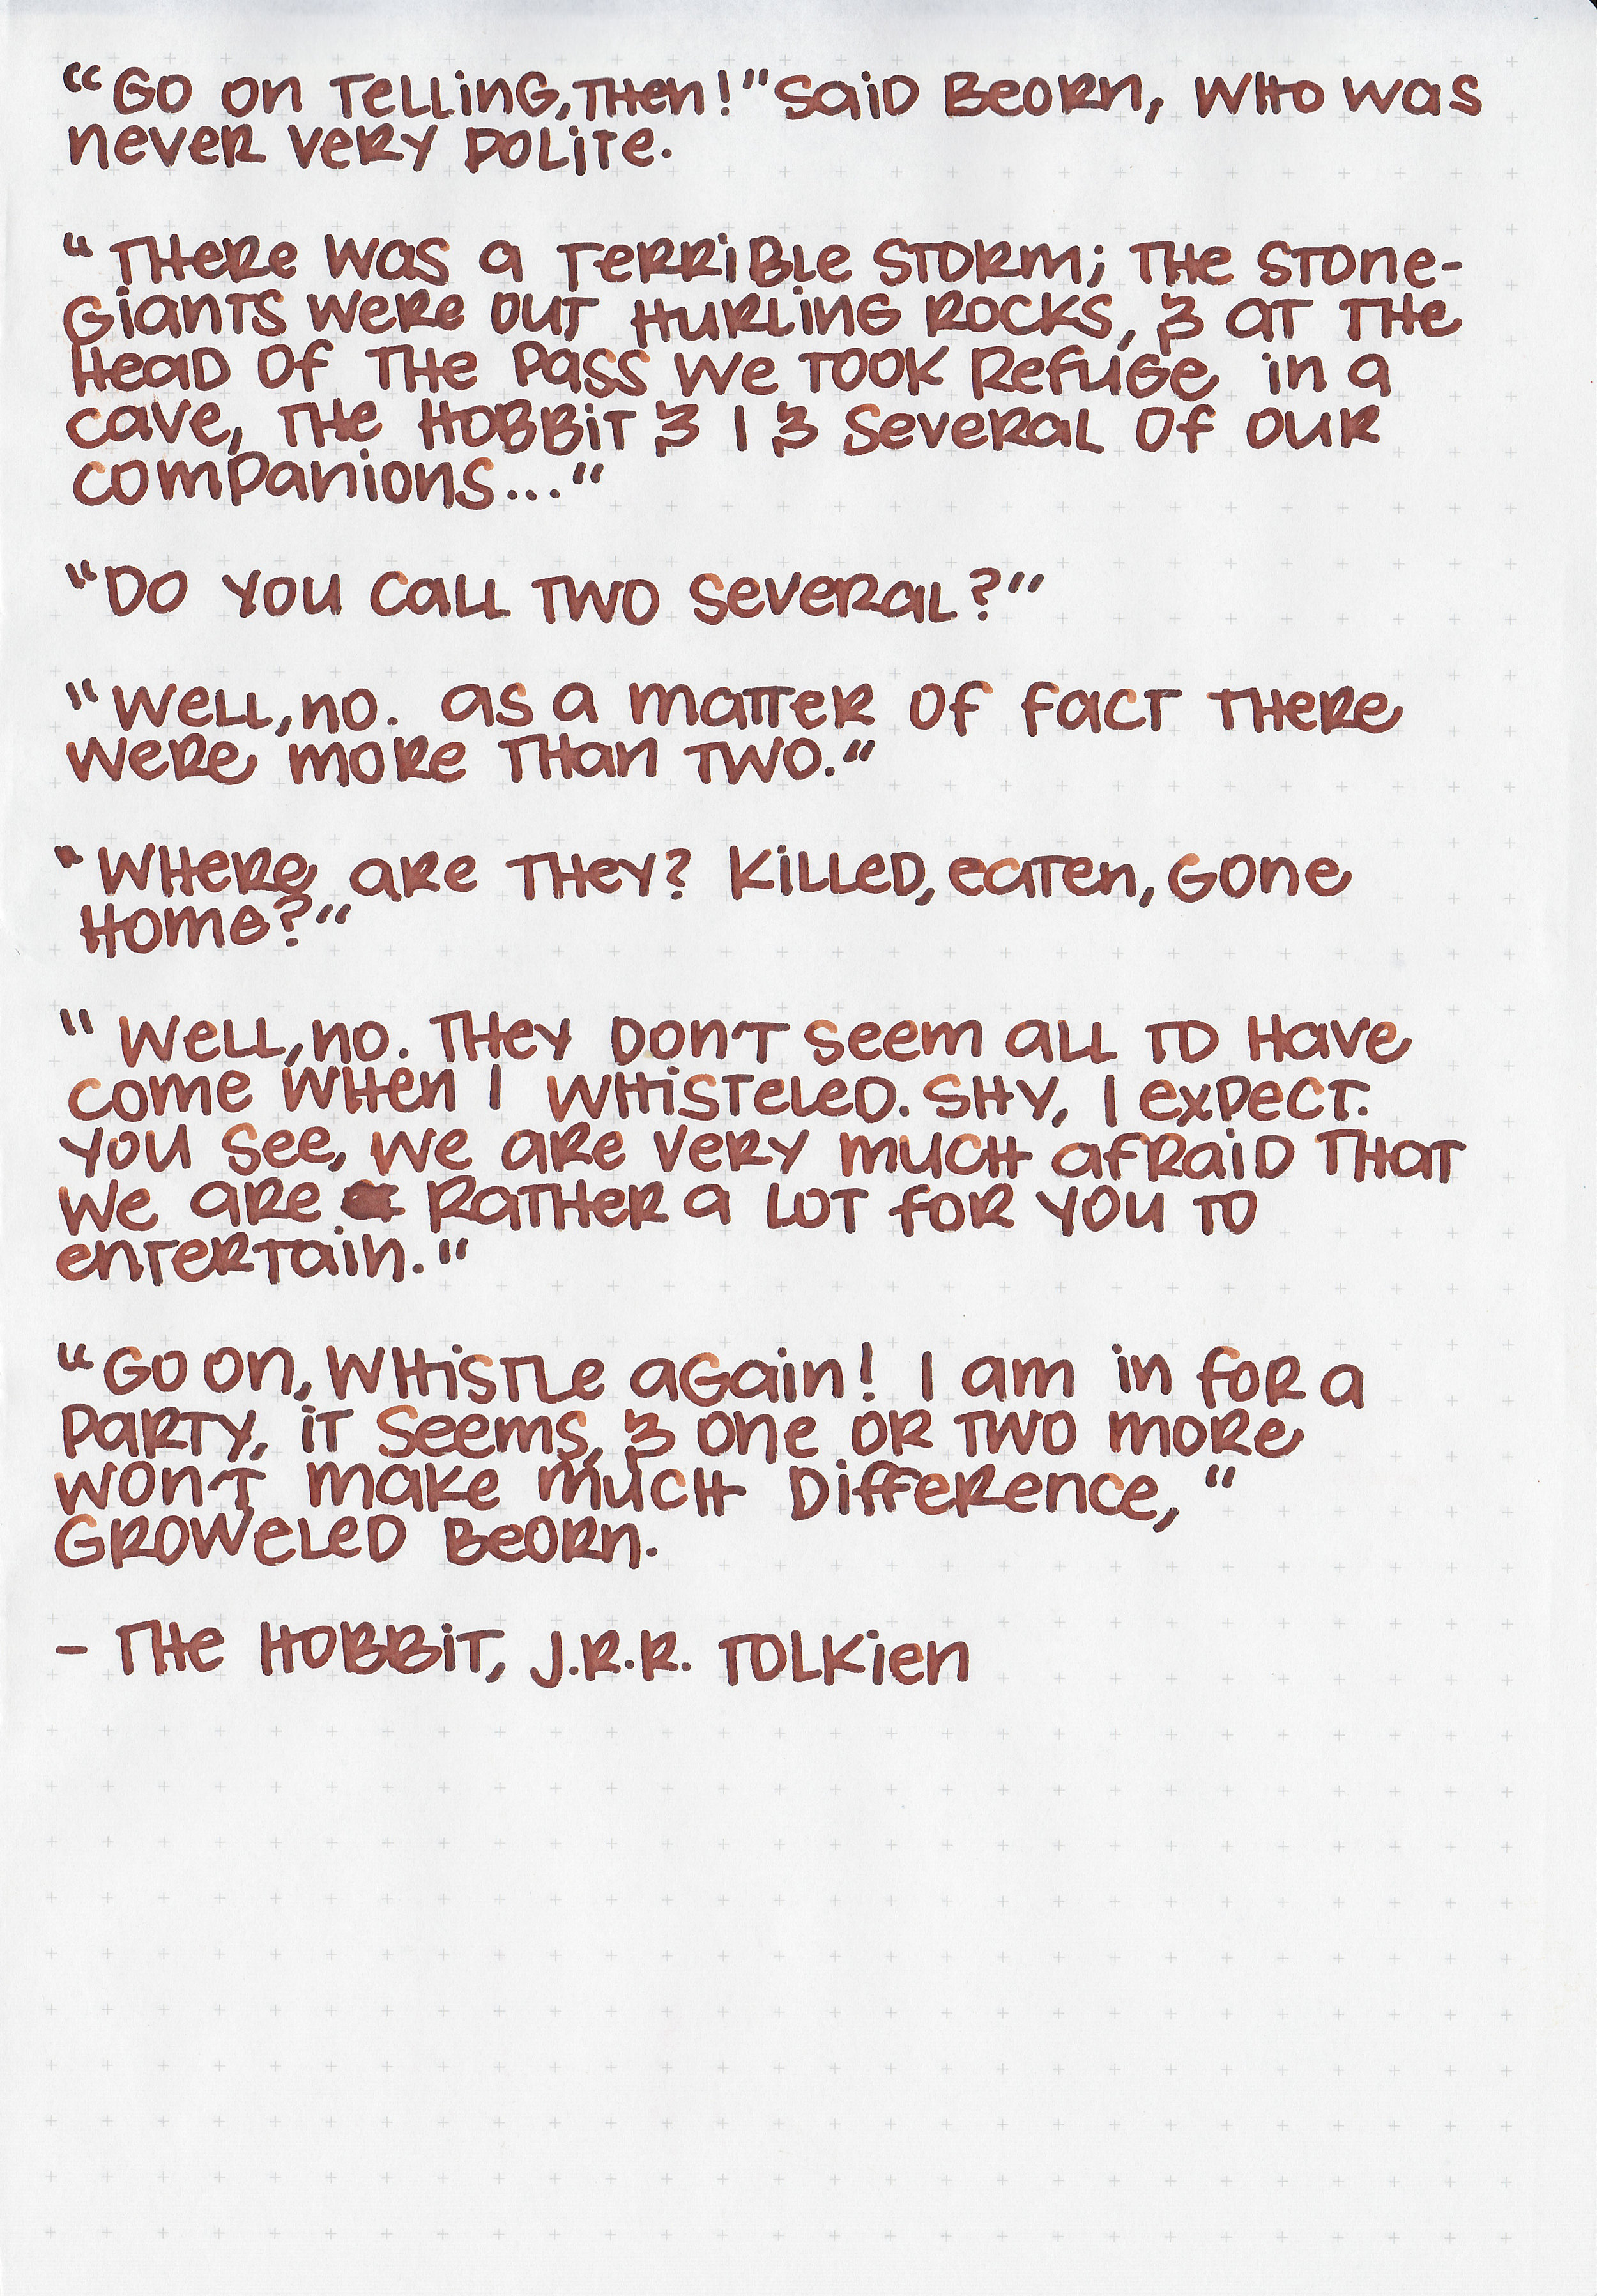 "Go on telling, then!" said Beorn, who was
never very polite.
"There was a terrible storm; the stone-
giants were out hurling rocks, & at the
head of the pass we took refuge in a
cave, the hobbit & I & several of our
companions..."
"Do you call two several?"
"Well, no. As a matter of fact there
were more than two."
"Where are they? Killed, eaten, gone
home?"
"Well, no. They don't seem all to have
come when I whisteled. Shy, I expect.
You see, we are very much afraid that
we are rather a lot for you to
entertain."
"Go on, whistle again! I am in for a
party, it seems, & one or two more
won't make much difference,"
groweled Beorn.
- The Hobbit, J.R.R. Tolkien